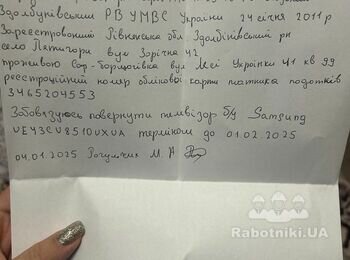 Здолбунівським РВ УМВС України 24 січня 2011 р
Зареєстрований Рівненська обл Здолбінівський рн
село П'ятигори вул Зорічна 42
проживаю Соф-Борщагівка вул Лесі Українки 41 кв 99
реєстраційний номер облікової карти платника податків
3465204553
Зобовязуюсь повернути телевізор б/у Samsung
UE43CU8510UXUA терміном до 01.02.2025
04.01.2025 М. А
Rabotniki.UA